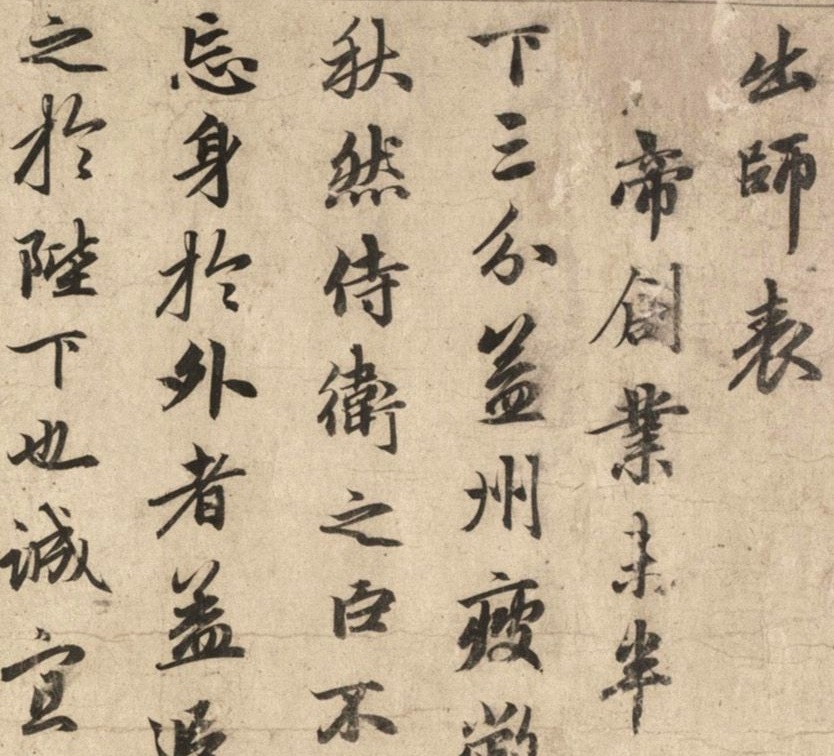 出師表
帝創業未半
下三分益州疲
秋然侍衛之臣不
忘身於外者蓋追
之於陛下也誠宜